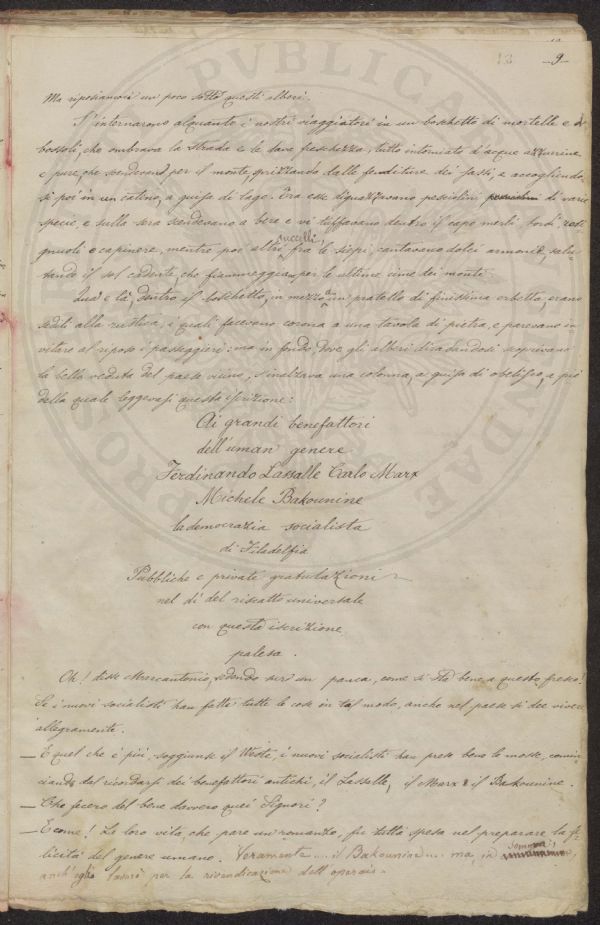 9
Ma riposiamoci un poco sotto questi alberi.
S'internarono alquanto i nostri viaggiatori in un boschetto di mortelle e di
bossoli, che ombrava la strada e le dava freschezza, tutto intorniato d'acque azzurrine
e pure, che scendevano per il monte, sprizzando dalle fenditure dei sassi, e accogliendo
si poi in un catino, a guisa di lago. Tra esse diguazzavano pesciolini di varie
specie, e sulla sera scendevano a bere e vi tuffavano dentro il capo merli, tordi, rosi
gnuoli e capinere, mentre poi altri uccelli, fra le siepi, cantavano dolci armonie, salu
tando il sol cadente, che fiammeggiava per le ultime cime dei monti.
Quà e là, dentro il boschetto, in mezzo a un pratello di finissima erbetta, erano
sedili alla rustica, i quali facevano corona a una tavola di pietra, e parevano in
vitare al riposo i passeggieri: ma in fondo, dove gli alberi diradandosi scoprivano
la bella veduta del paese vicino, s'inalzava una colonna, a guisa di obelisco, a piè
della quale leggevasi questa iscrizione:
Ai grandi benefattori
dell'uman genere
Ferdinando Lassalle Carlo Marx
Michele Bakounine
la democrazia socialista
di Filadelfia
Pubbliche e private gratulazioni
nel dì del riscatto universale
con questa iscrizione
palesa.
Oh! disse Marcantonio, sedendo su un panca, come si sta bene a questo fresco!
Se i nuovi socialisti han fatte tutte le cose in tal modo, anche nel paese si dee vivere
allegramente.
— E quel che è più, soggiunse il Weste, i nuovi socialisti han preso bene le mosse, comin
ciando dal ricordarsi dei benefattori antichi, il Lassalle, il Marx e il Bakounine.
— Che fecero del bene davvero quei Signori?
— E come! La loro vita, che pare un romanzo, fu tutta spesa nel preparare la fe
licità del genere umano. Veramente... il Bakounine... ma, in somma,
anch'egli lavorò per la rivendicazione dell'operaio.